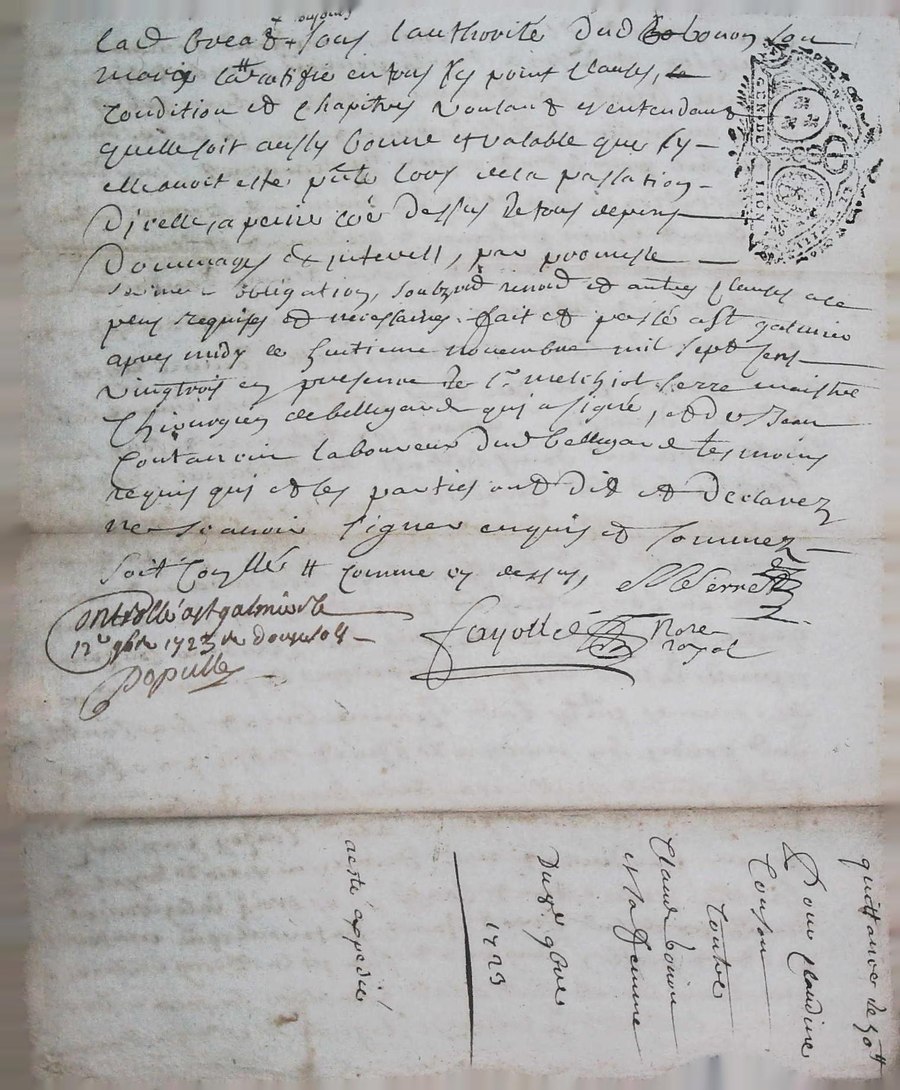 sous l'authorité dud bonon son
mary ratifie en tous ses point clauses,
Condition et chapitres voulant et entendant
quelle soit aussy bonne et valable que sy
elle avoit esté pnte lors de la passation
Dicelle, a peine de tous depens
Dommages & interest, par promesse
obligation, et autres clauses a ce
plus requises et necessaires. fait et passé a St galmier
apres midy le huitieme novembre mil sept cens
vingtrois en presence de Sr melchiol serre maistre
Chirurgien de bellegarde qui a signé, et de Jean
laboureur dud bellegarde tesmoins
requis qui et les parties ont dit et declarez
ne scavoir signer enquis et sommez
soit Conllé # comme cy dessus, M Serre
Controllé a St galmier le
12e 9bre 1723 R douze sols
Populle
fayolle Nore
royal
GEN DE LION
quittance de 50 tt
Pour claudine
Couson
Contre
Claude bonon
et sa femme
Du 8e 9bre
1723
a esté expedié